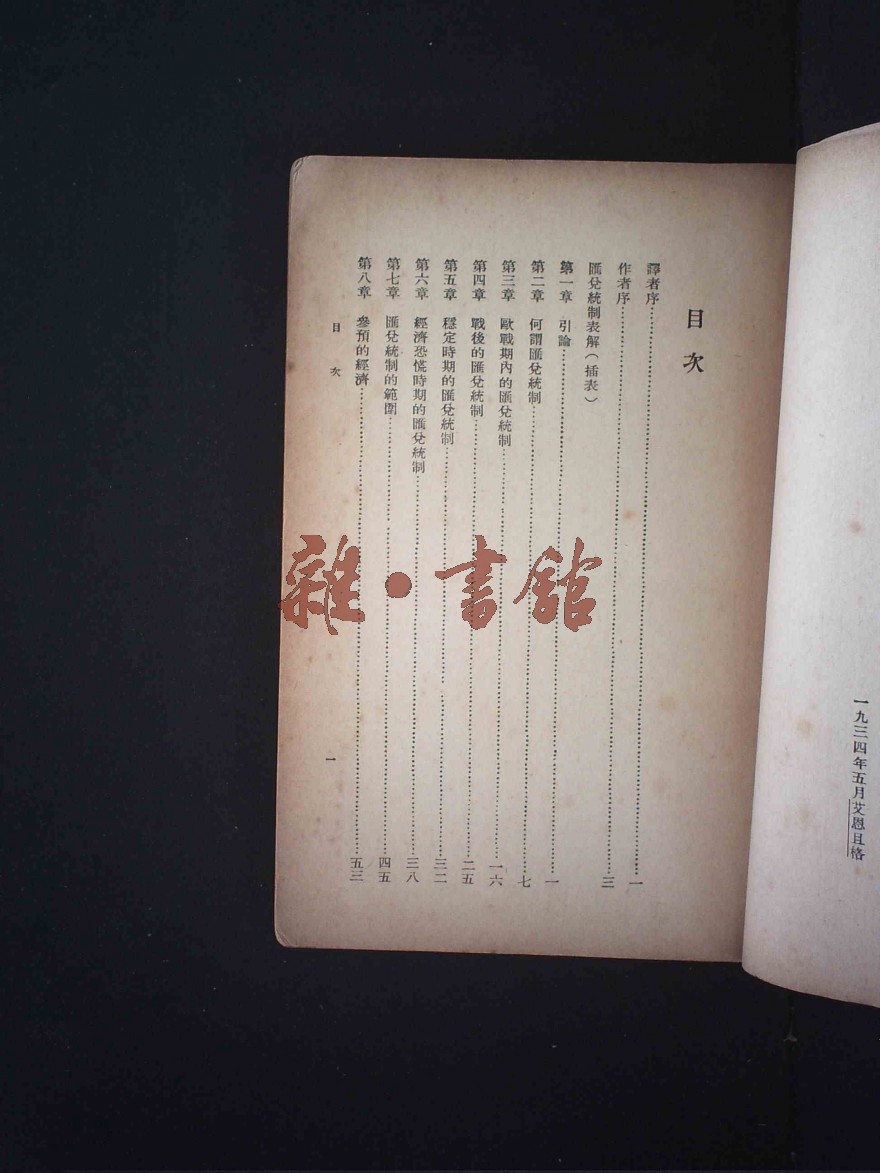 一九三四年五月艾恩且格
目次
譯者序……一
作者序……三
匯兌統制表解（插表）
第一章 引論……一
第二章 何謂匯兌統制……七
第三章 歐戰期內的匯兌統制……一六
第四章 戰後的匯兌統制……二五
第五章 穩定時期的匯兌統制……三二
第六章 經濟恐慌時期的匯兌統制……三八
第七章 匯兌統制的範圍……四五
第八章 參預的經濟……五三
目次 一
雜·書館